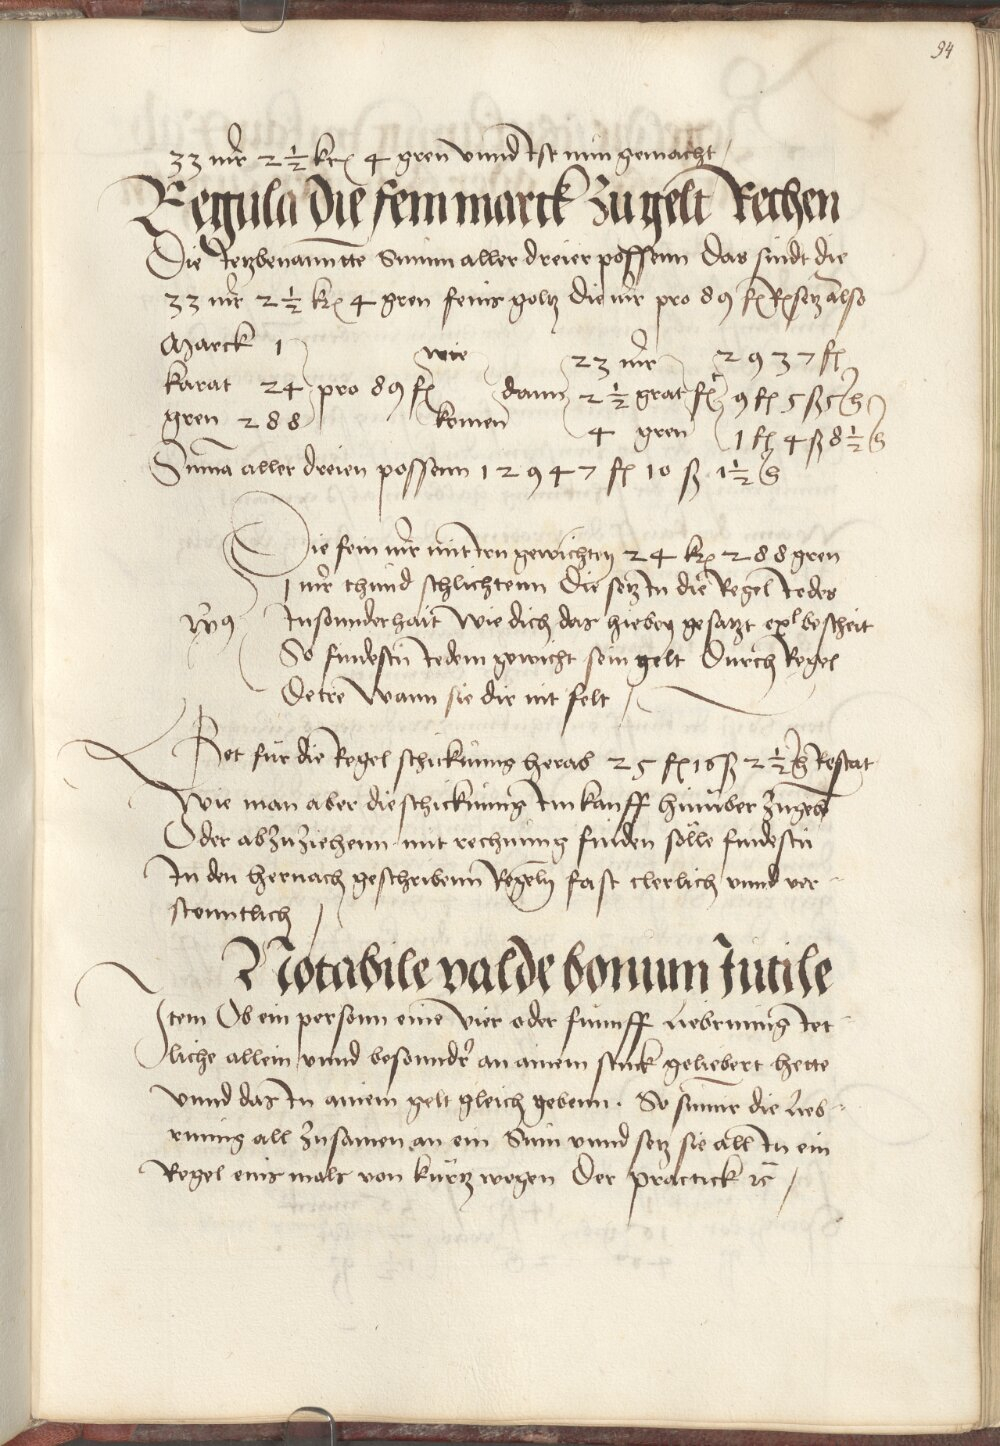 94
33 mr 2 ½ kr 4 gren vnnd Ist nun gemacht
Regula die fein marck Zu gelt Rechen
Die Ietzbenanntte Summ aller dreier possenn Das sindt die
33 mr 2 ½ kr 4 gren feins goltz die mr pro 89 fl Rſ setz also
Marck 1 wie 23 mr 2937 fl
karat 24 pro 89 fl dann 2 ½ grat ft 9 fl 5 ß 5 h
gren 288 komen 4 gren 1 fl 4 ß 8 ½ h
Suma aller dreien possenn 12947 fl 10 ß 1 ½ h
Die fein mr mit Irn gewichten 24 kr 288 gren
1 mr thund schlichtenn Die setz In die Regel Iedes
Insonnderhait Wie dich das hiebey gesatzt expl bescheit
So findestu Iedem gewicht sein gelt Durch Regel
Detre Wann sie dir nit felt
Get für die Regel schickung herab 25 fl 16 ß 2 ½ h Restat
Wie man aber die schickung Im kauff hinüber Zugebe
Oder abZuZiehenn mit rechnung finden sölle findestu
In den hernach geschribenn Regeln fast clerlich vnnd ver
stenntlich
Notabile valde bonum Iutile
Item Ob ein personn eine vier oder fünff Liebrung Iet
liche allein vnnd besonndr an ainem stuck geliebert hette
vnnd das In ainem gelt gleich gebenn. So sume die Lieb
rung all Zusamen an ein Sum vnnd setz sie all In ein
Regel eins mals von kürtz wegen Der practick ꝛc